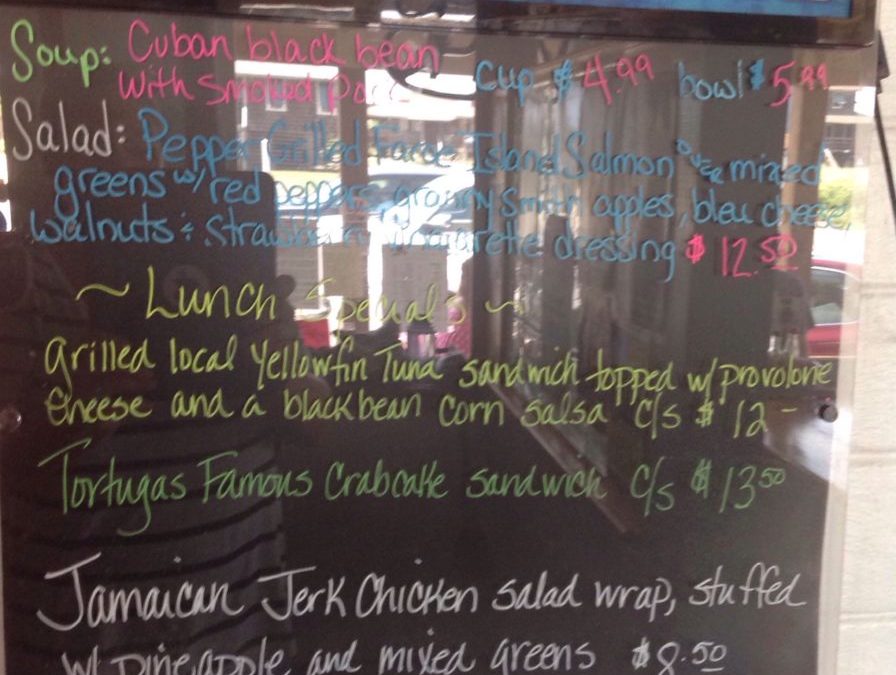 Soup: Cuban black bean
with smoked pork cup $4.99 bowl $5.99
Salad: Pepper Grilled Faroe Island Salmon over mixed
greens w/ red peppers, granny smith apples, bleu cheese,
walnuts & Strawberry vinaigrette dressing $12.50
~ Lunch Specials ~
Grilled local Yellowfin Tuna sandwich topped w/ provolone
cheese and a black bean corn salsa c/s $12-
Tortugas Famous Crabcake sandwich c/s $13.50
Jamaican Jerk Chicken salad wrap, stuffed
w/ pineapple and mixed greens $8.50